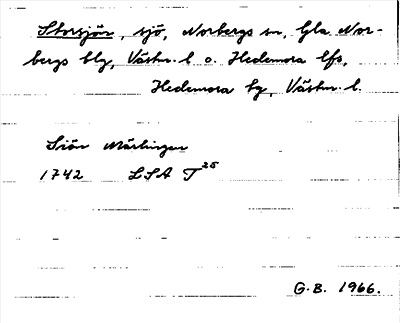 Storsjön, sjö, Norbergs sn, Gla Nor-
bergs blg, Västm. l. o. Hedemora lfs,
Hedemora kg, Västm. l.
Siön Märlingen
1742 LSA T 25
G.B. 1966.